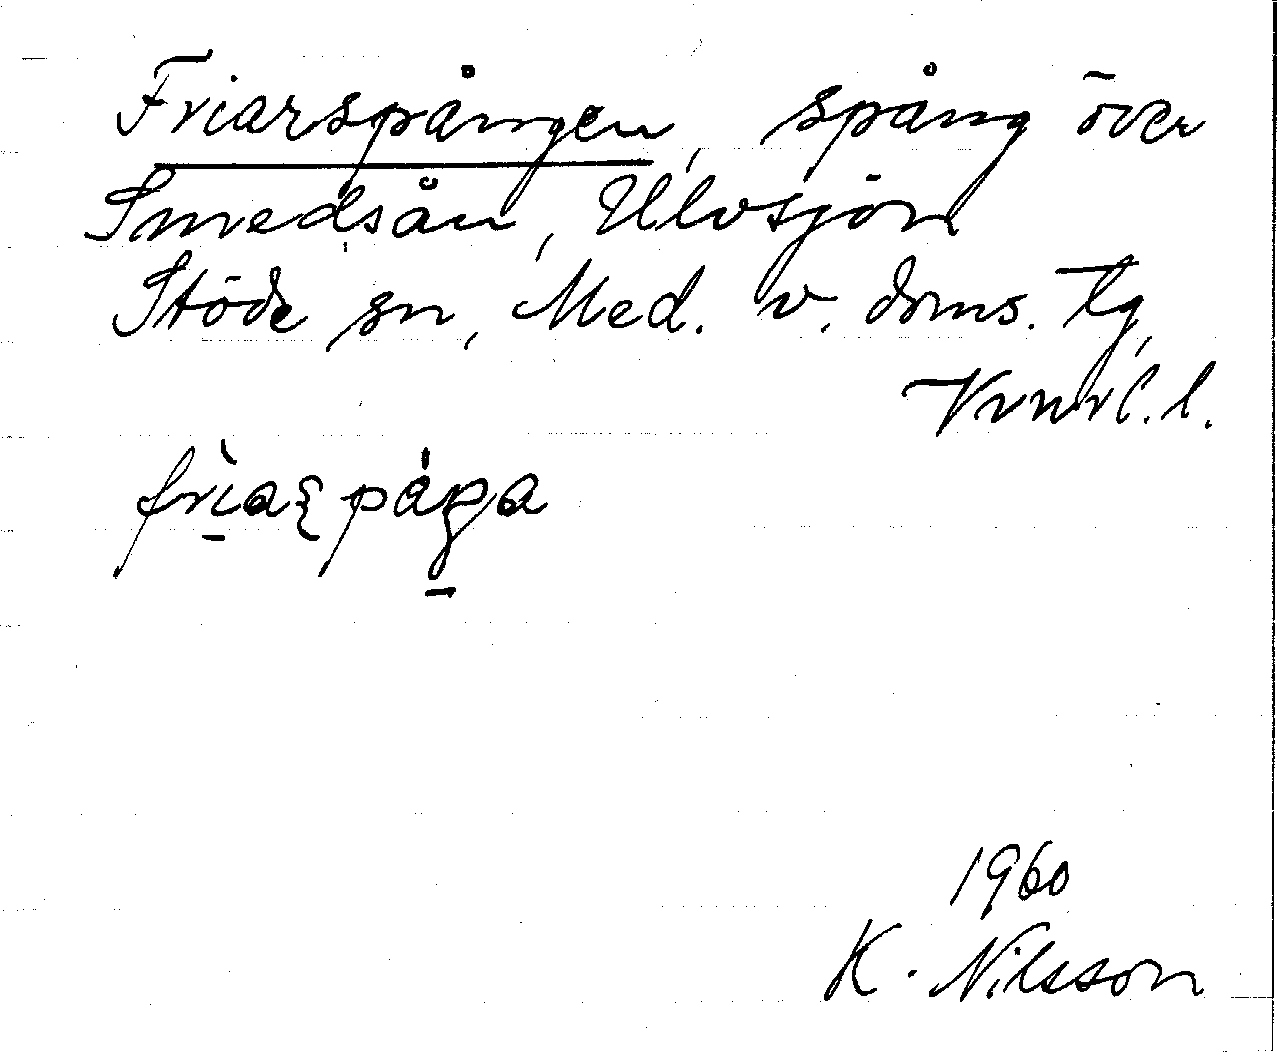 Friarspången, spång över
Smedsån, Ulvsjön
Stöde sn, Med. v. doms. tg,
Vrnrl. l.
1960
K. Nilsson